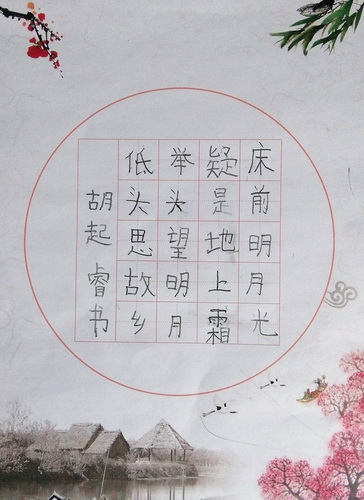 床前明月光
疑是地上霜
举头望明月
低头思故乡
胡起睿书